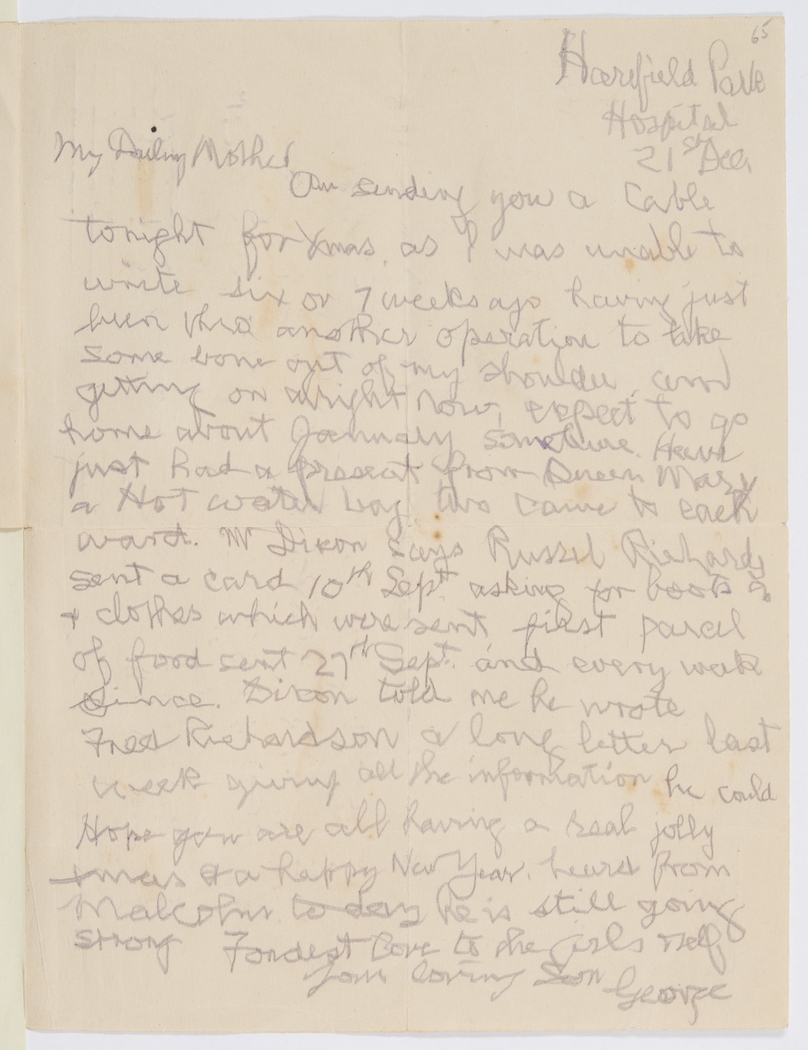 65
Harefield Park
Hospital
21st Dec.
My Darling Mother
Am sending you a Cable
tonight for Xmas, as I was unable to
write six or 7 weeks ago having just
been thro another operation to take
some bone out of my shoulder, am
getting on alright now, expect to go
home about January sometime. Have
just had a present from Queen Mary
a Hot water bag two came to each
ward. Mr Dixon says Russel Richards
sent a card 10th Sept. asking for boots
& clothes which were sent first parcel
of food sent 27th Sept. and every week
since. Dixon told me he wrote
Fred Richardson a long letter last
week giving all the information he could
Hope you are all having a real jolly
xmas & a happy New Year. heard from
Malcolm to day he is still going
strong Fondest Love to the girls & self
Your loving Son
George